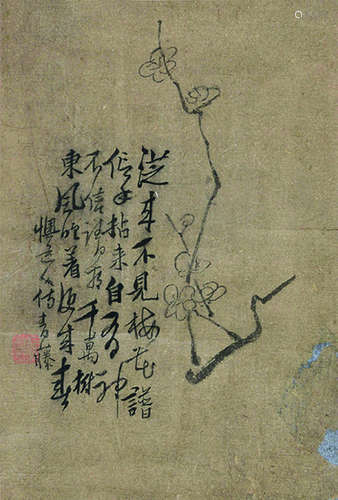 從来不見梅花譜
信手拈来自有神
不信試看千萬樹
東風吹著便成春
仿青藤